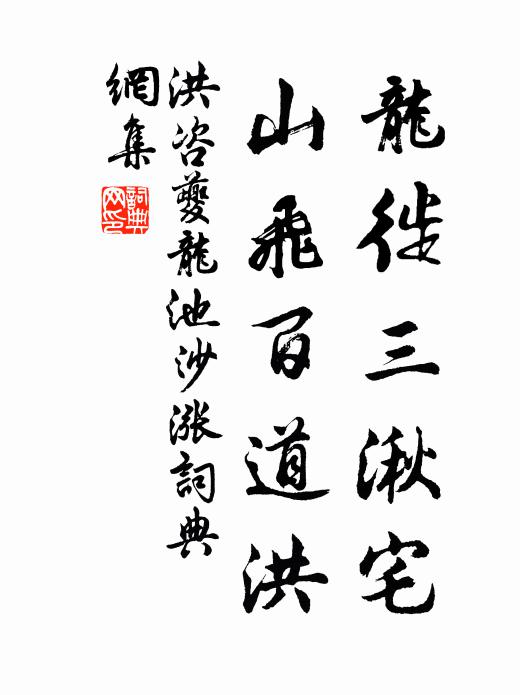 龍徙三湫宅
山飛百道洪
洪咨夔龍池沙漲詞典
網集
詞典網印